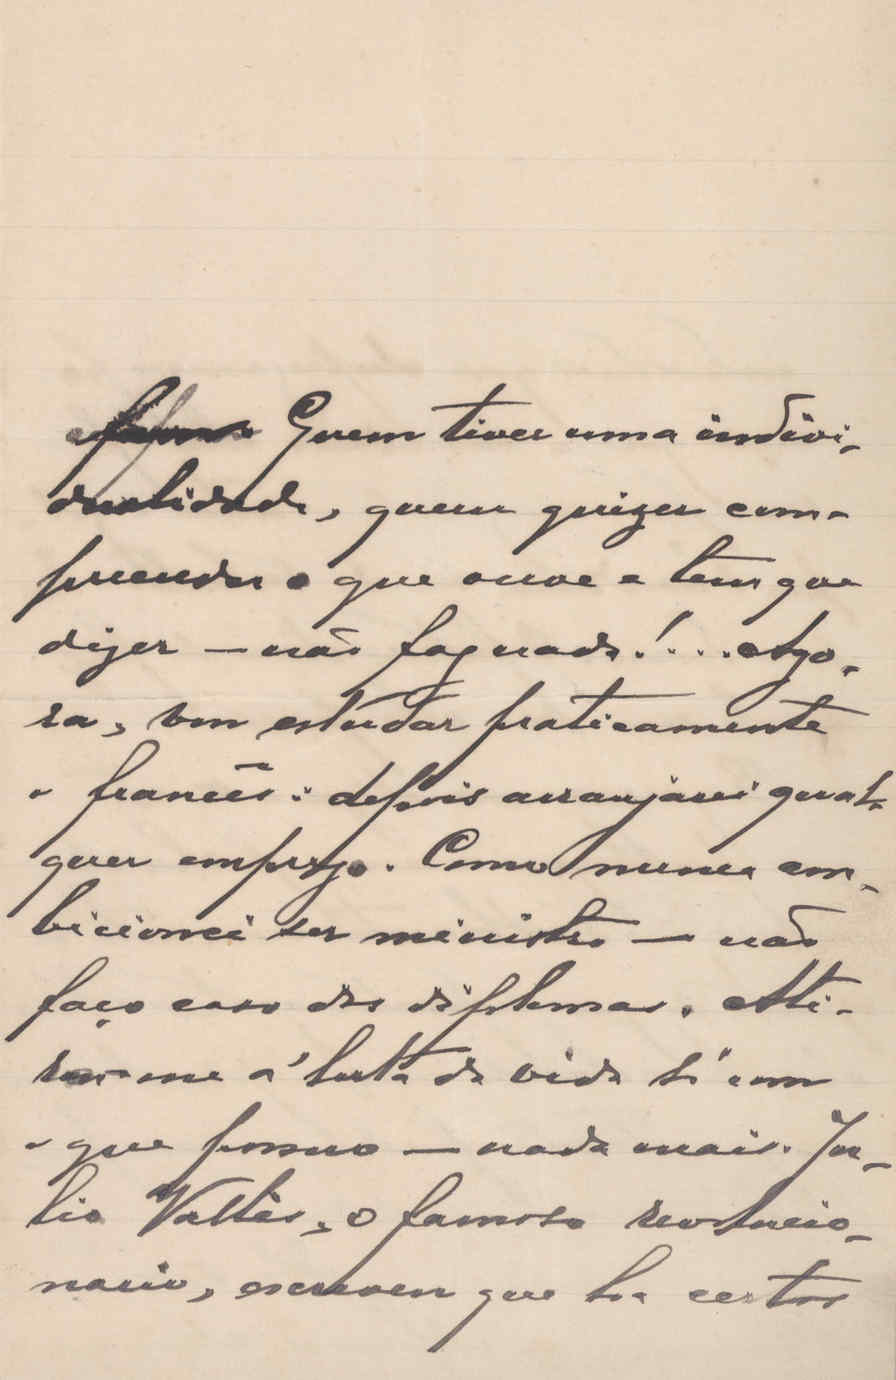 Quem tiver uma indivi-
dualidade, quem quizer com-
prehender o que ouve e tem que
dizer — não faz nada!.... Ago-
ra, vou estudar praticamente
o francês: depois arranjarei qual-
quer emprego. Como nunca am-
bicionei ser ministro — não
faço caso dos diplomas. Ati-
rar-me á lucta da vida só com
o que possuo — nada mais. Ju-
lio Vallès, o famoso revolucio-
nario, escreveu que ha certos